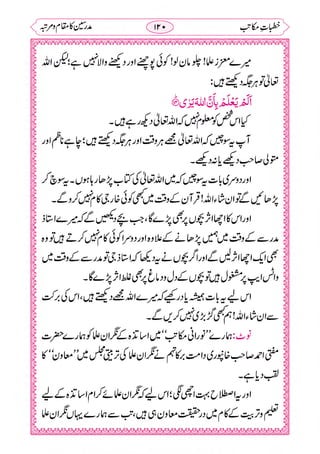 خطباتِ مکاتب ۱۲۰ مدرسین کا مقام و مرتبہ
میرے معزز علما! چلو مان لو! کوئی پوچھنے اور دیکھنے والا نہیں ہے؛ لیکن! اللہ
تعالیٰ تو ہر جگہ دیکھتے ہیں:
اَلَمْ یَعْلَمْ بِاَنَّ اللّٰهَ یَرٰی ﴿﴾
کیا اس شخص کو معلوم نہیں کہ اللہ تعالیٰ دیکھ رہے ہیں۔
آپ یہ سوچیں کہ اللہ تعالیٰ مجھے ہر وقت اور ہر جگہ دیکھتے ہیں؛ چاہے ناظم اور
متولی صاحب دیکھے یا نہ دیکھے۔
اور دوسری بات یہ سوچیں کہ میں اللہ تعالیٰ کی کتاب پڑھا رہا ہوں۔ یہ سوچ کر
پڑھائیں گے تو ان شاء اللہ! قرآن کے وقت میں کبھی کوئی خارجی کام نہیں کرو گے۔
اور اس کا اچھا اثر بچوں پر بھی پڑے گا، جب بچے دیکھیں گے کہ میرے استاذ
مدرسے کے وقت میں ہمیں پڑھانے کے علاوہ اور دوسرا کوئی کام نہیں کرتے ہیں تو وہ
بھی ایک اچھا اثر لیں گے اور اگر بچوں نے یہ دیکھا کہ استاذ جی تو مدرسے کے وقت میں
واٹس ایپ پر مشغول ہیں تو بچوں کے دل و دماغ پر بھی غلط اثر پڑے گا۔
اس لیے یہ بات ہمیشہ یاد رکھیے کہ میرے اللہ مجھے دیکھتے ہیں، بس اسی کی برکت
سے ان شاء اللہ! ہم کبھی گڑبڑی نہیں کریں گے۔
نوٹ: ہمارے ”نورانی مکاتب“ میں اساتذہ کے نگران علما کو ہمارے حضرت
مفتی احمد صاحب خانپوری دامت برکاتہم نے نگران علما کی تربیتی مجلس میں ”معاون“ کا
لقب دیا ہے۔
اور یہ اصطلاح بہت اچھی لگی؛ اس لیے کہ نگران علمائے کرام اساتذہ کے لیے
تعلیم و تربیت کے کام میں در حقیقت معاون ہی ہیں، تب سے ہمارے یہاں نگران علما